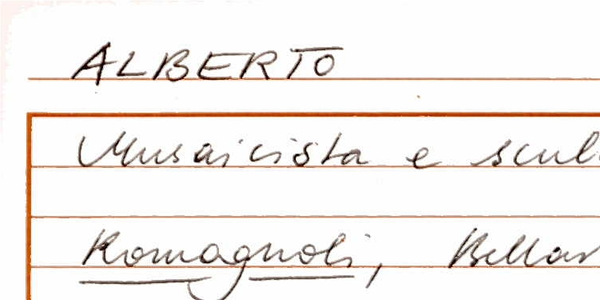 ALBERTO
Musaicista e scul
Romagnoli, Bellar